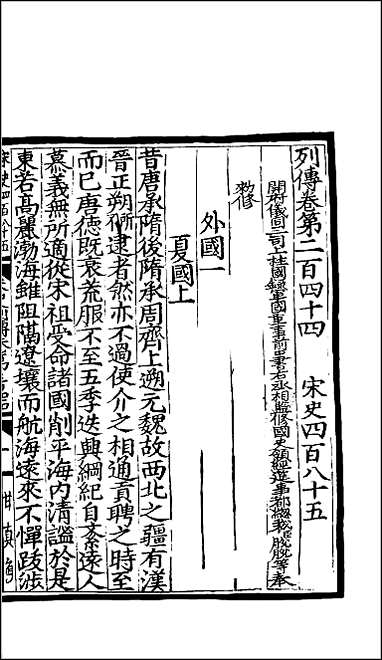 列傳卷第二百四十四　宋史四百八十五
開府儀同三司上柱國錄軍國重事前中書右丞相監修國史領經筵事都總裁脫脫等奉
敕修
外國一
夏國上
昔唐承隋後隋承周齊上遡元魏故西北之疆有漢
晉正朔所逮者然亦不過使介之相通貢聘之時至
而已唐德既衰荒服不至五季迭興綱紀自紊遠人
慕義無所適從宋祖受命諸國削平海內清謐於是
東若高麗渤海雖阻隔遼壤而航海遠來不憚跋涉